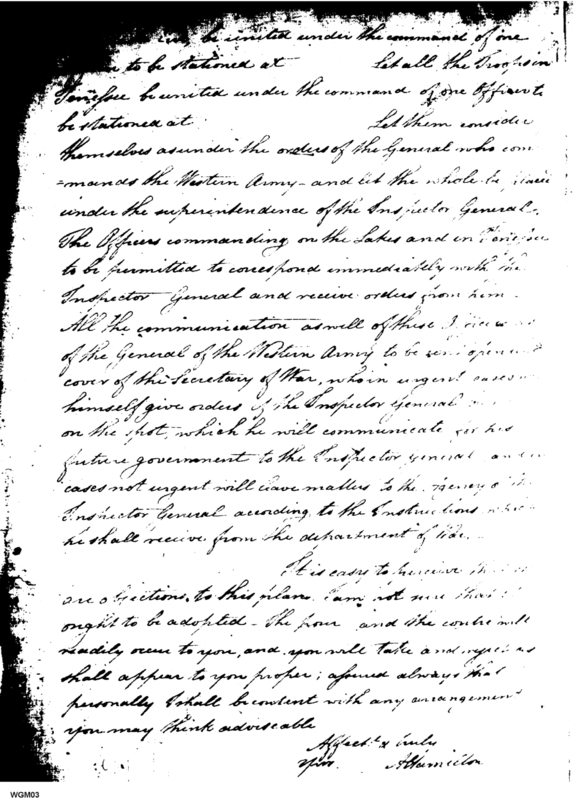 be united under the command of one
to be stationed at Let all the Troops in
Tennessee be united under the command of one Officer to
be stationed at Let them consider
themselves as under the orders of the General who com
=mands the Western Army - and let the whole be
under the superintendence of the Inspector General.
The Officers commanding on the Lakes and in Tennessee
to be permitted to correspond immediately with the
Inspector General and receive orders from him.
All the communication as well of these Officers as
of the General of the Western Army to be sent open
cover of the Secretary of War, who in urgent cases
himself give orders if the Inspector General
on the spot, which he will communicate for his
future government to the Inspector general and in
cases not urgent will leave matters to the Agency of the
Inspector General according to the Instructions which
he shall receive from the department of War.
It is easy to perceive that
are objections to this plan. I am not sure that it
ought to be adopted - The pour and the contre will
readily occur to you, and you will take and reject as
shall appear to you proper; assured always that
personally I shall be content with any arrangement
you may think adviseable
Affecly & truly
Yrs. A Hamilton
WGM03